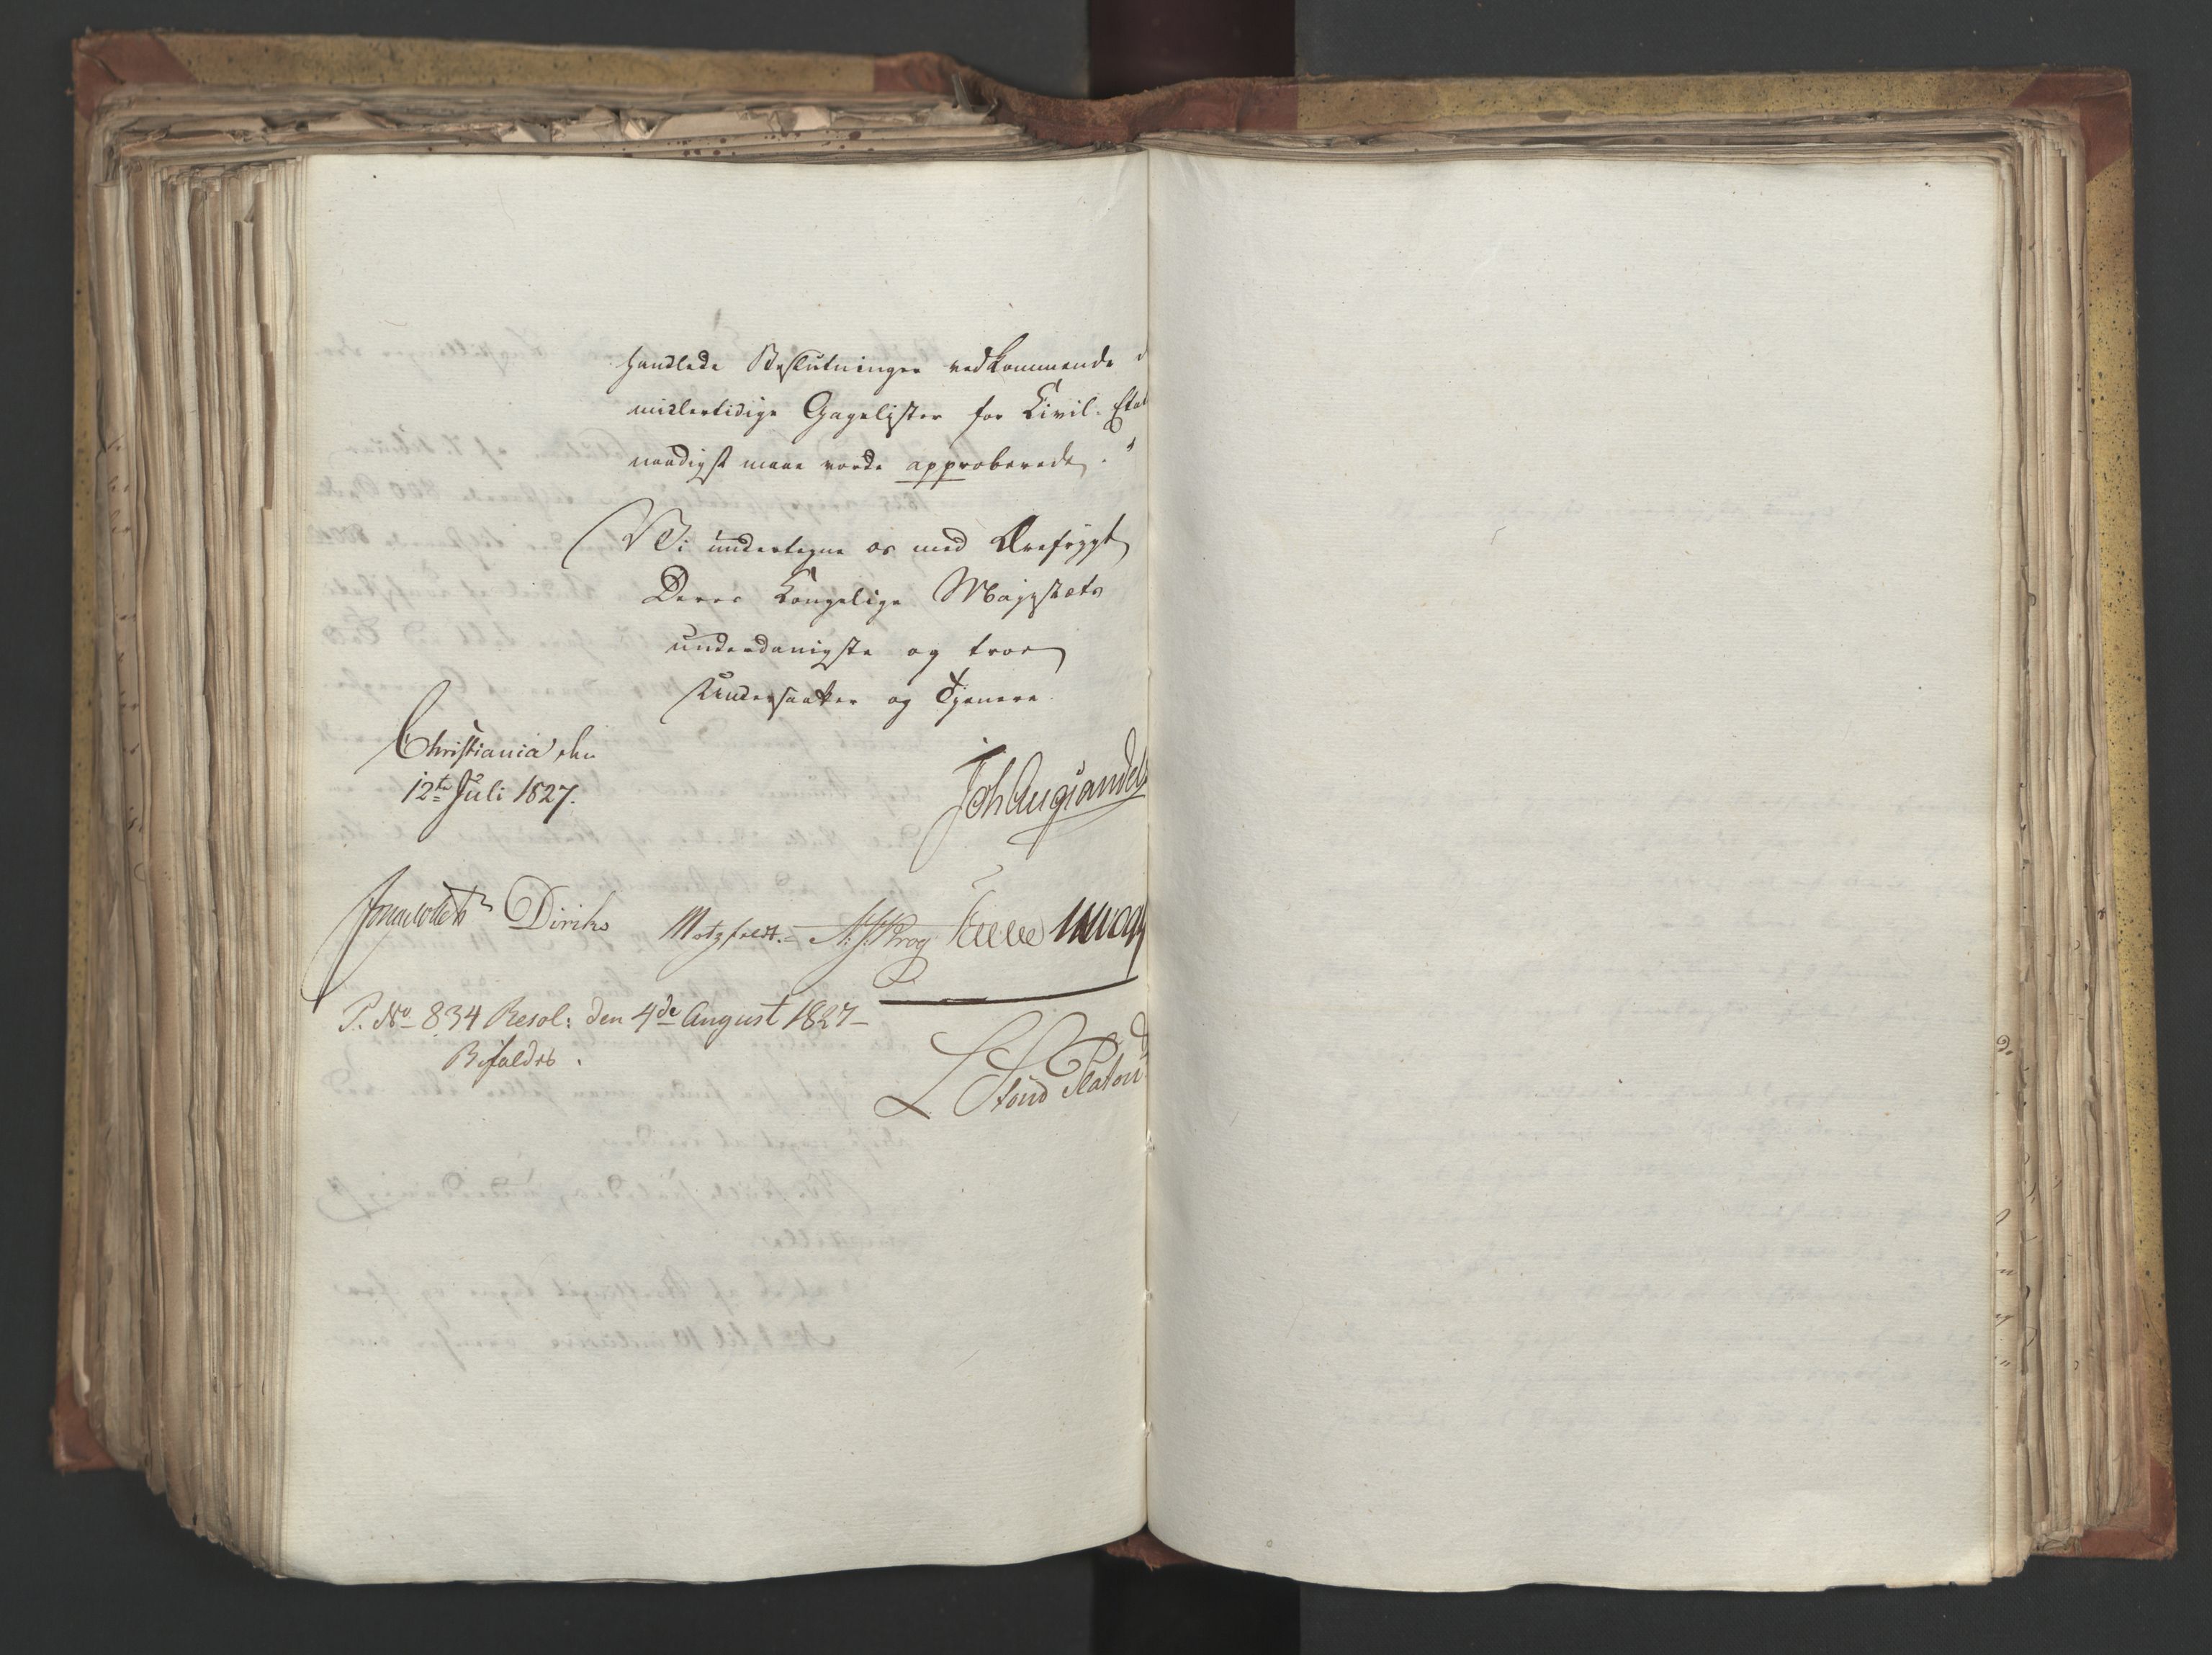 handlede Beslutninger vedkommende d
midlertidige Gagelister for Civil-Etat
naadigst maae vorde approberede."
Vi undertegne os med Ærefrygt
Deres Kongelige Majestæts
underdanigste og troe
Undersaatter og Tjenere
Christiania den
12te Juli 1827.
Joh Aug Sandels
Jonas Collett Diriks Motzfeldt. Krog Treschow
P. No 834 Resol: den 4de August 1827 –
Bifaldes.
L Stoud Platou